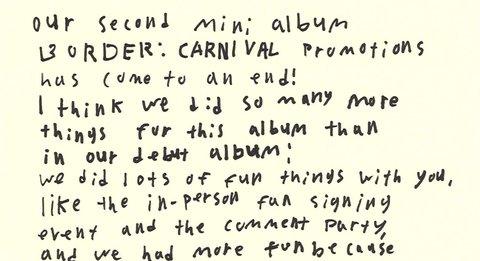 our second mini album
BORDER: CARNIVAL promotions
has come to an end!
I think we did so many more
things for this album than
in our debut album!
we did lots of fun things with you,
like the in-person fan signing
event and the comment party,
and we had more fun because